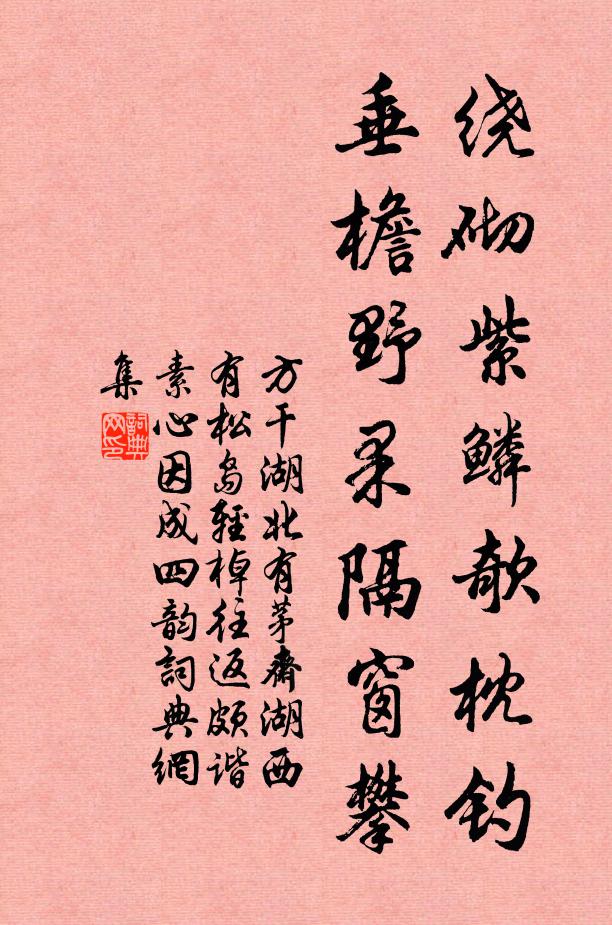 绕砌紫鳞欹枕钓
垂檐野果隔窗攀
方干湖北有茅斋湖西
有松岛轻棹往返颇谐
素心因成四韵詞典網
集
詞典
网印